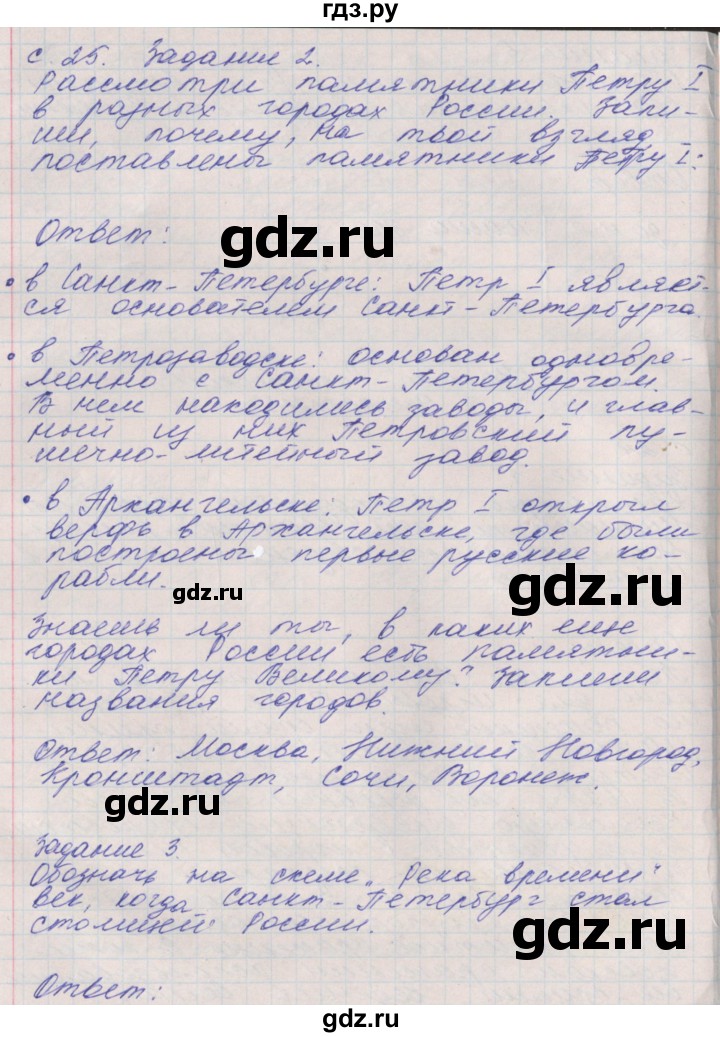 гдз.ру
с. 25. Задание 2.
Рассмотри памятники Петру I
в разных городах России. Запи-
ши, почему, на твой взгляд,
поставлены памятники Петру I:
Ответ:
gdz.ru
• в Санкт-Петербурге: Петр I являет-
ся основателем Санкт-Петербурга.
• в Петрозаводске: основан одновре-
менно с Санкт-Петербургом.
В нем находились заводы, и глав-
ный из них Петровский пу-
шечно-литейный завод.
• в Архангельске: Петр I открыл
верфь в Архангельске, где были
построены первые русские ко-
рабли.
gdz.ru
gdz.ru
Знаешь ли ты, в каких еще
городах России есть памятни-
ки Петру Великому? Запиши
названия городов.
Ответ: Москва, Нижний Новгород,
Кронштадт, Сочи, Воронеж.
gdz.ru
Задание 3.
Обозначь на схеме „Река времени"
век, когда Санкт-Петербург стал
столицей России.
gdz.ru
Ответ:
gdz.ru